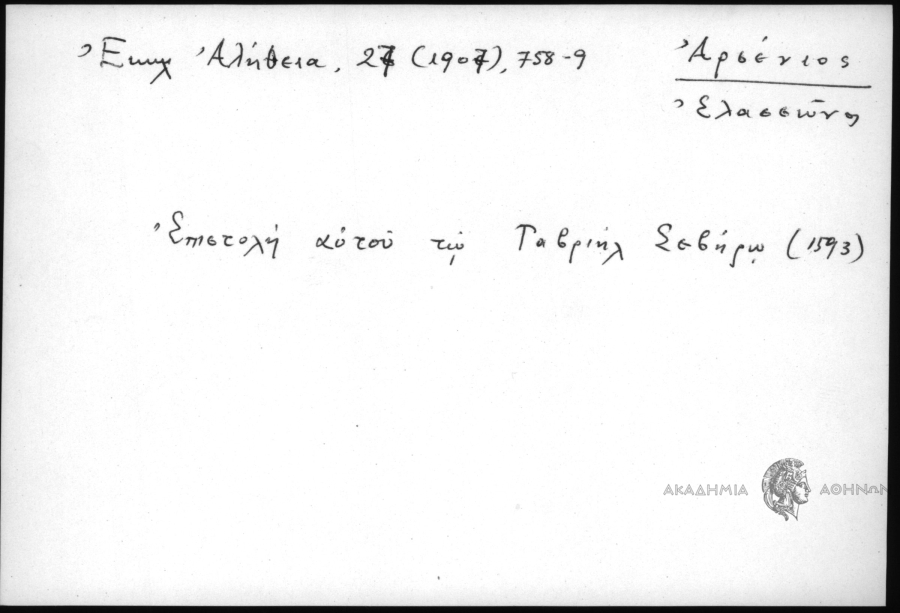 Ἐκκλ Ἀλήθεια, 27 (1907), 758-9
Ἀρσένιος
Ἐλασσῶνος
Ἐπιστολή αὐτοῦ τῷ Γαβριήλ Σεβήρῳ (1593)
ΑΚΑΔΗΜΙΑ ΑΘΗΝΩΝ